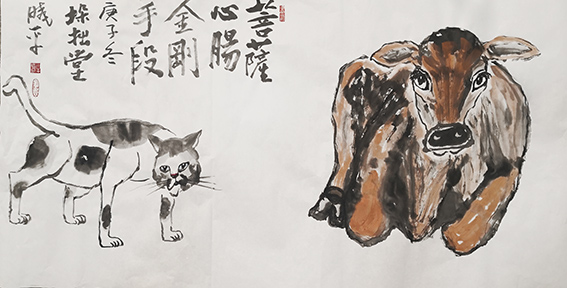 菩薩
心腸
金剛
手段
庚子冬
拙堂
晓平